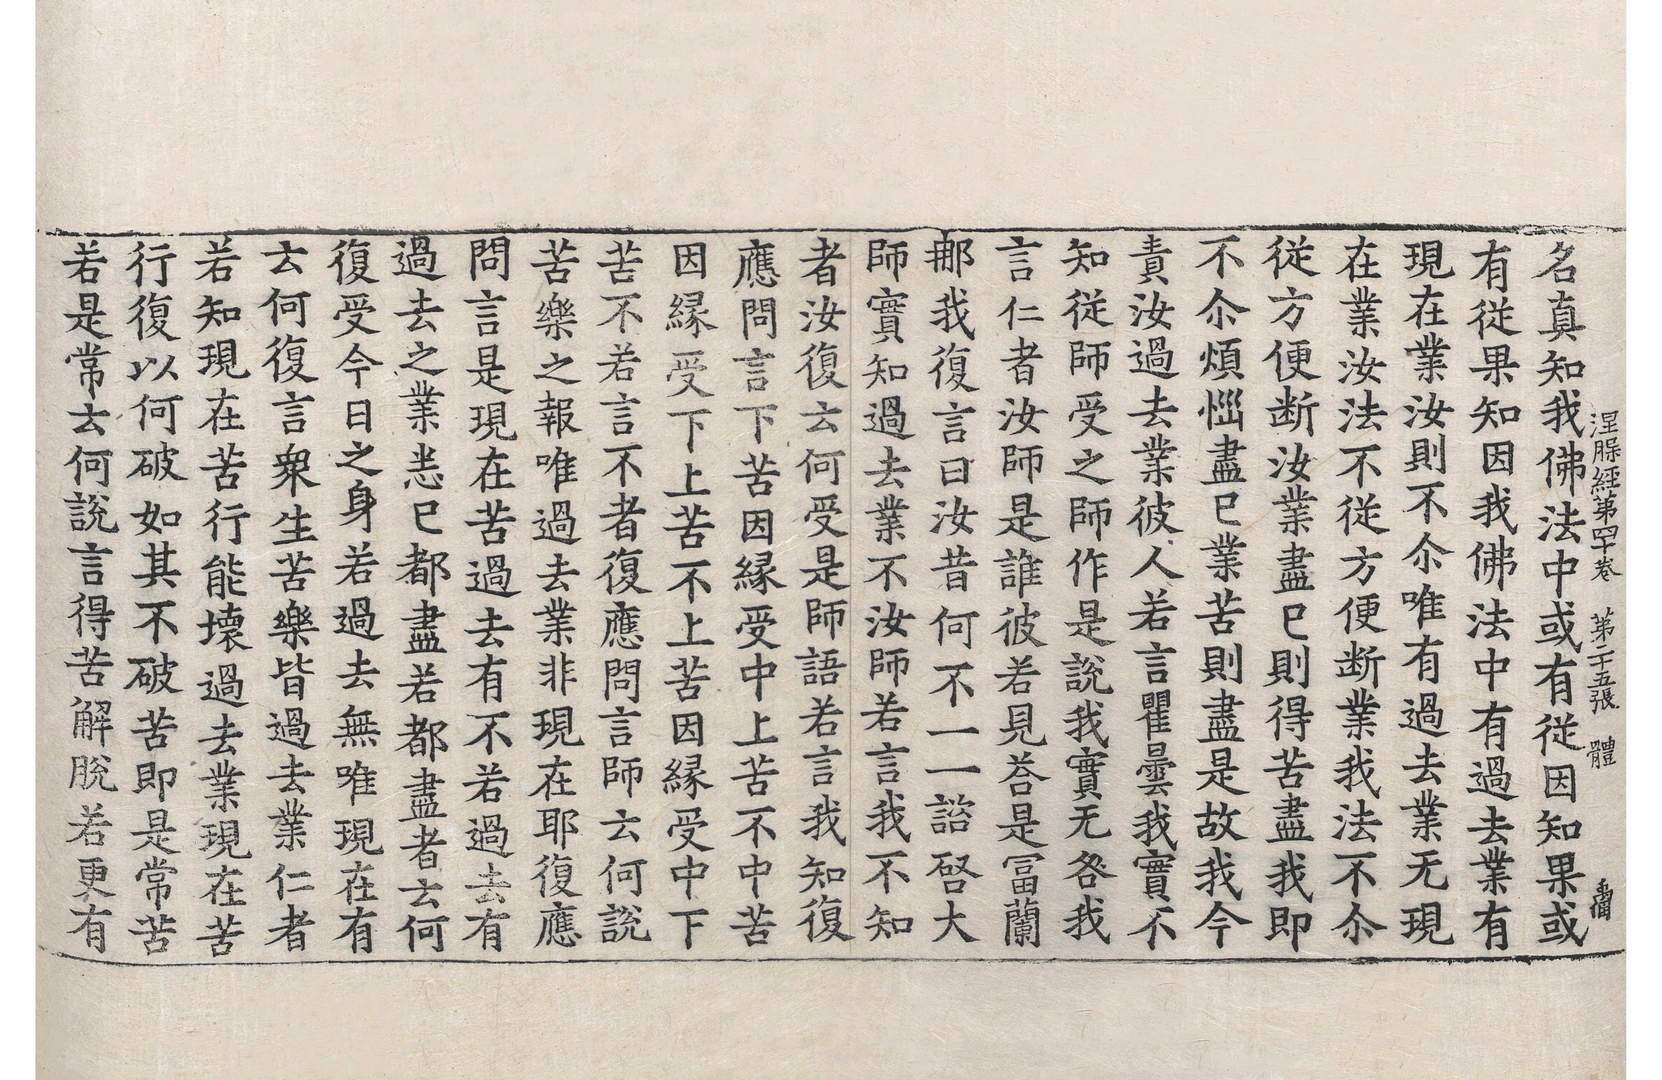 涅槃經第四十卷　第二十五張　體
名真知我佛法中或有従因知果或
有従果知因我佛法中有過去業有
現在業汝則不尒唯有過去業无現
在業汝法不従方便断業我法不尒
従方便断汝業盡已則得苦盡我即
不尒煩惱盡已業苦則盡是故我今
責汝過去業彼人若言瞿曇我實不
知従師受之師作是說我實无咎我
言仁者汝師是誰彼若見荅是冨蘭
那我復言曰汝昔何不一一諮啓大
師實知過去業不汝師若言我不知
者汝復云何受是師語若言我知復
應問言下苦因縁受中上苦不中苦
因縁受下上苦不上苦因縁受中下
苦不若言不者復應問言師云何說
苦樂之報唯過去業非現在耶復應
問言是現在苦過去有不若過去有
過去之業悉已都盡若都盡者云何
復受今日之身若過去無唯現在有
云何復言衆生苦樂皆過去業仁者
若知現在苦行能壊過去業現在苦
行復以何破如其不破苦即是常苦
若是常云何說言得苦解脫若更有